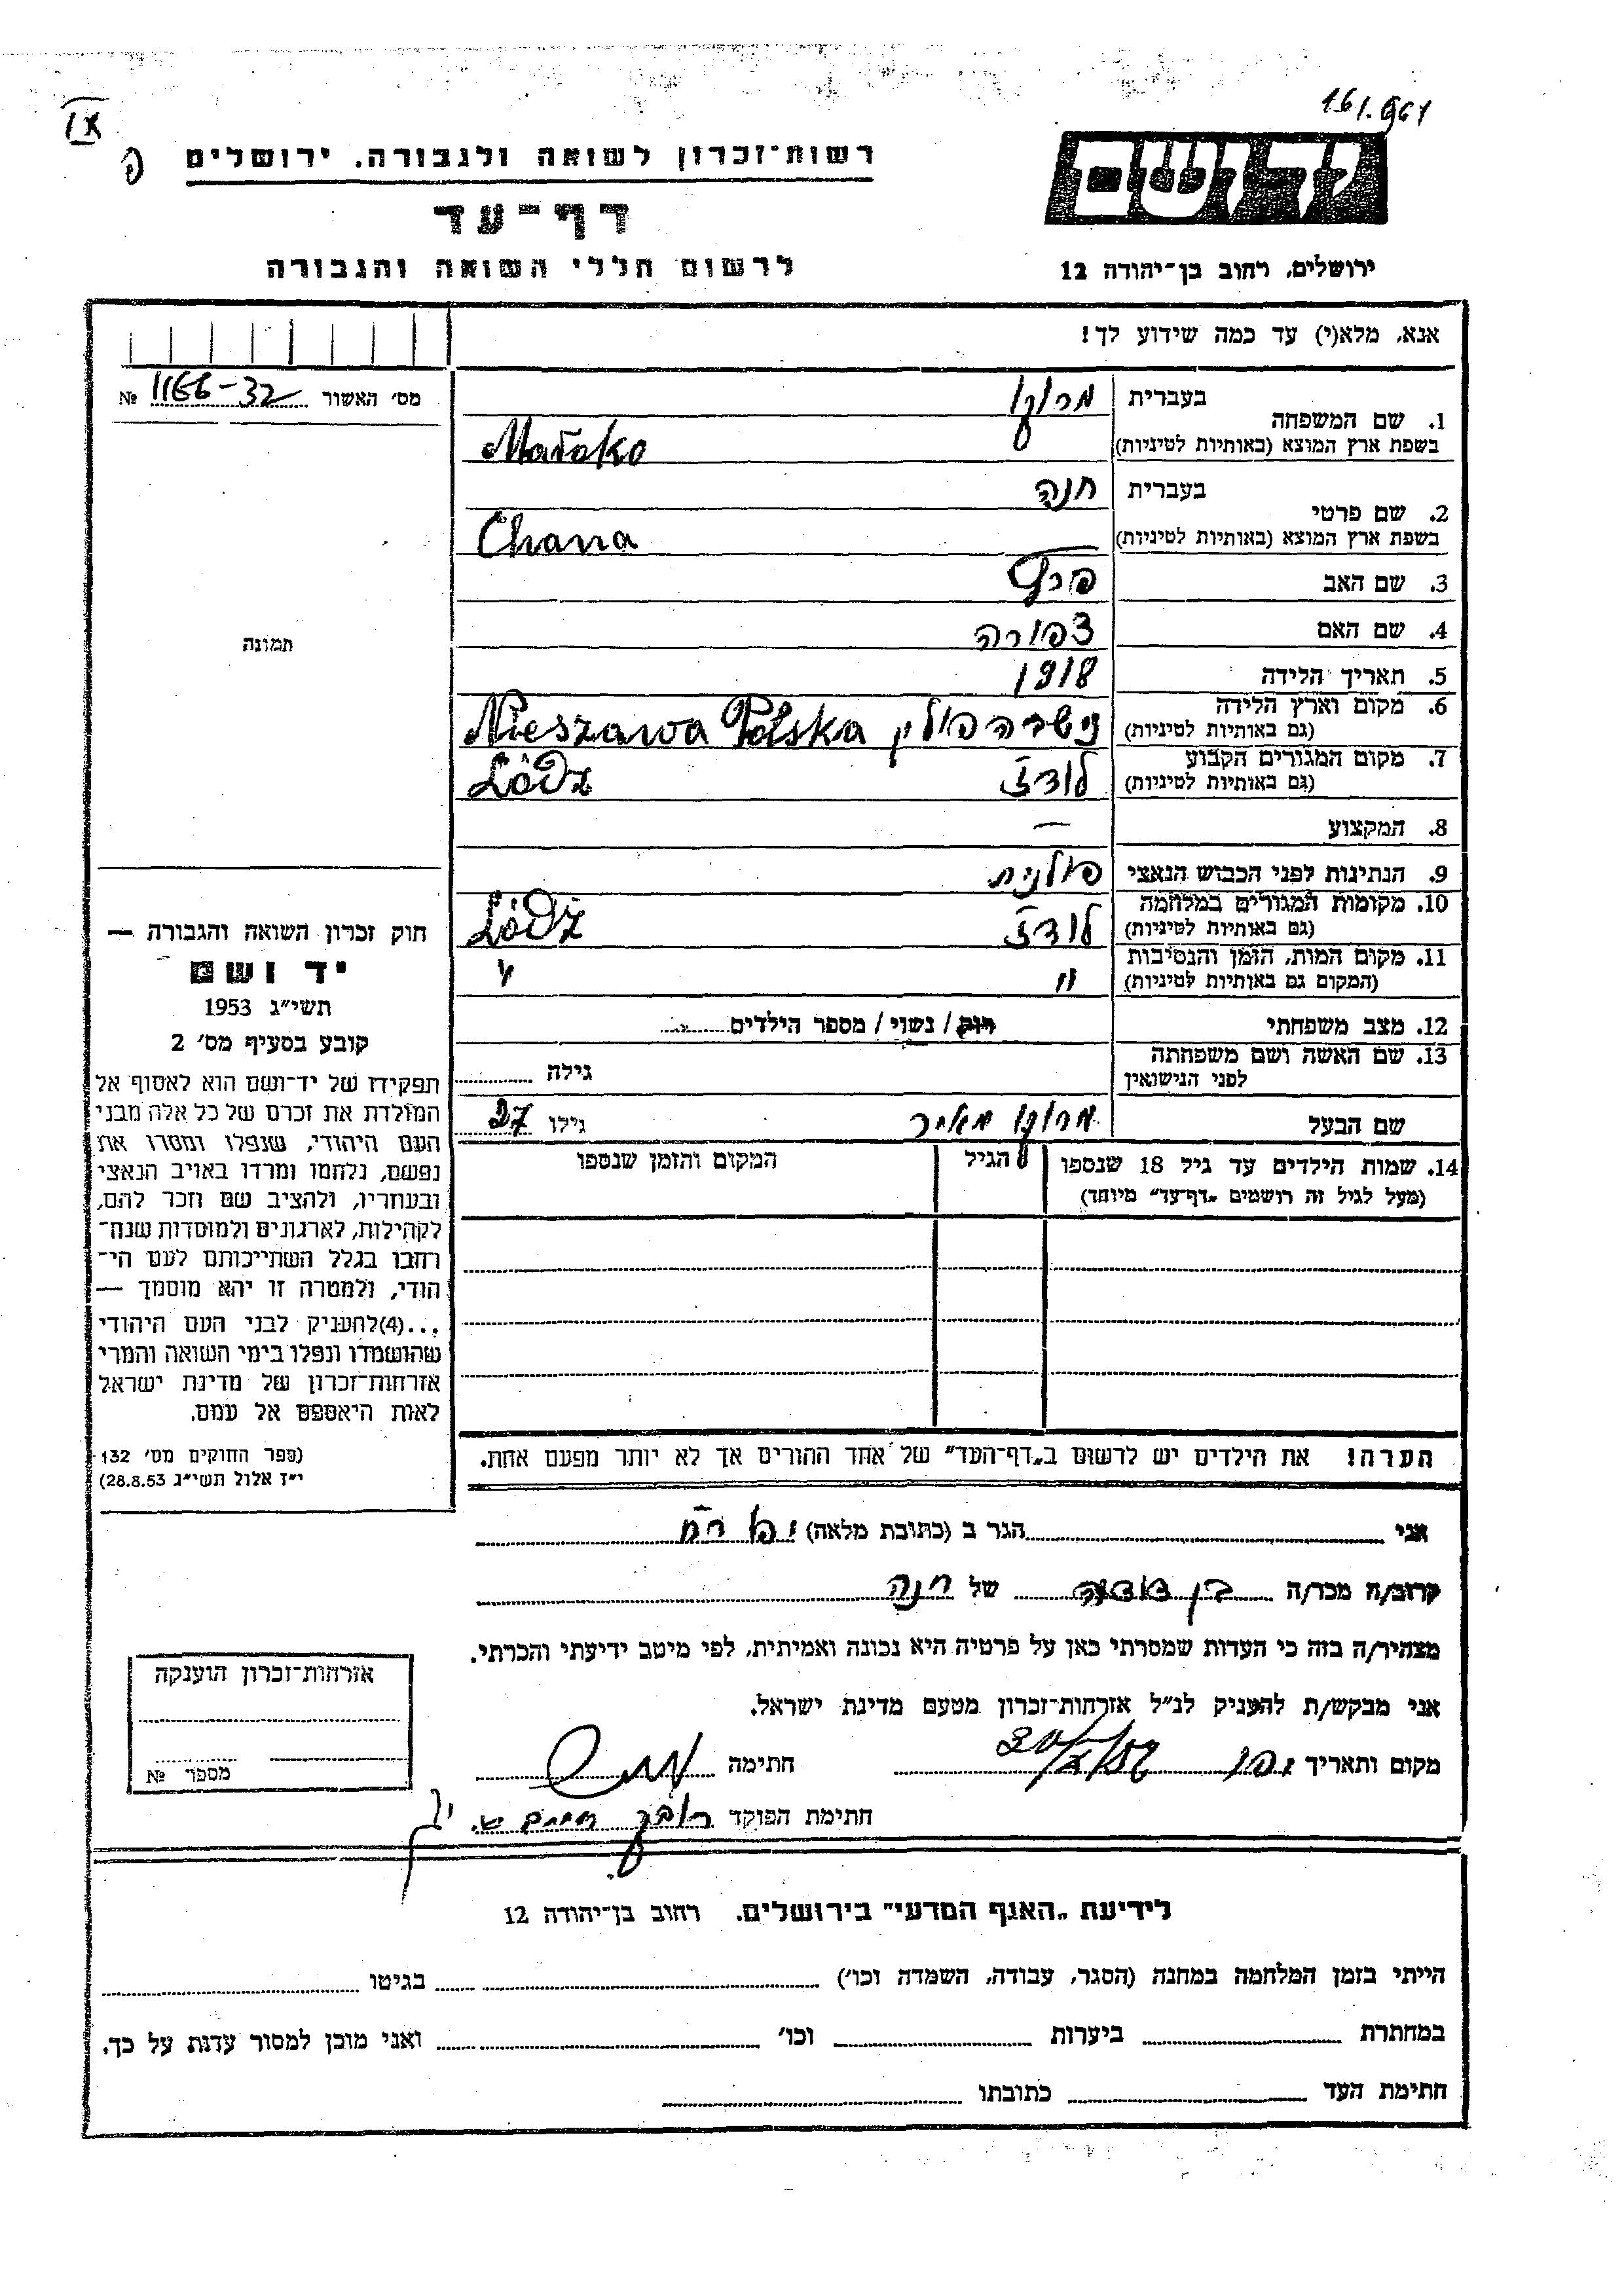 161.961
IX
רשות־זכרון לשואה ולגבורה. ירושלים
דף־עד
לרשום חללי השואה והגבורה
יד ושם
ירושלים, רחוב בן־יהודה 12
אנא, מלא(י) עד כמה שידוע לך!
מס׳ האשור 1166-32 №
1. שם המשפחה
בעברית
בשפת ארץ המוצא (באותיות לטיניות)
2. שם פרטי
בעברית חנה
בשפת ארץ המוצא (באותיות לטיניות) Chana
3. שם האב
4. שם האם צפורה
5. תאריך הלידה 1918
6. מקום וארץ הלידה
(גם באותיות לטיניות) פולין Nieszawa Polska
7. מקום המגורים הקבוע
(גם באותיות לטיניות) לודז Łódź
8. המקצוע —
9. הנתינות לפני הכבוש הנאצי פולנית
10. מקומות המגורים במלחמה
(גם באותיות לטיניות) לודז Łódź
11. מקום המות, הזמן והנסיבות
(המקום גם באותיות לטיניות) " "
12. מצב משפחתי רוק / נשוי / מספר הילדים
13. שם האשה ושם משפחתה
לפני הנישואין גילה
שם הבעל מאיר גילו 27
14. שמות הילדים עד גיל 18 שנספו
(מעל לגיל זה רושמים „דף־עד״ מיוחד)
הגיל
המקום והזמן שנספו
תמונה
חוק זכרון השואה והגבורה —
יד ושם
תשי״ג 1953
קובע בסעיף מס׳ 2
תפקידו של יד־ושם הוא לאסוף אל
המולדת את זכרם של כל אלה מבני
העם היהודי, שנפלו ומסרו את
נפשם, נלחמו ומרדו באויב הנאצי
ובעוזריו, ולהציב שם וזכר להם,
לקהילות, לארגונים ולמוסדות שנח־
רחבו בגלל השתייכותם לעם הי־
הודי, ולמטרה זו יהא מוסמך —
...(4)להעניק לבני העם היהודי
שהושמדו ונפלו בימי השואה והמרי
אזרחות־זכרון של מדינת ישראל
לאות היאספם אל עמם.
(ספר החוקים מס׳ 132
י״ז אלול תשי״ג 28.8.53)
הערה! את הילדים יש לרשום ב„דף־העד״ של אחד ההורים אך לא יותר מפעם אחת.
אני הגר ב (כתובת מלאה)
קרוב/ה מכר/ה בן דודה של חנה
מצהיר/ה בזה כי העדות שמסרתי כאן על פרטיה היא נכונה ואמיתית, לפי מיטב ידיעתי והכרתי.
אני מבקש/ת להעניק לנ״ל אזרחות־זכרון מטעם מדינת ישראל.
מקום ותאריך יפו חתימה
חתימת הפוקד
אזרחות־זכרון הוענקה
מספר №
לידיעת „האגף המדעי״ בירושלים. רחוב בן־יהודה 12
הייתי בזמן המלחמה במחנה (הסגר, עבודה, השמדה וכו׳) בגיטו
במחתרת ביערות וכו׳ ואני מוכן למסור עדות על כך.
חתימת העד כתובתו